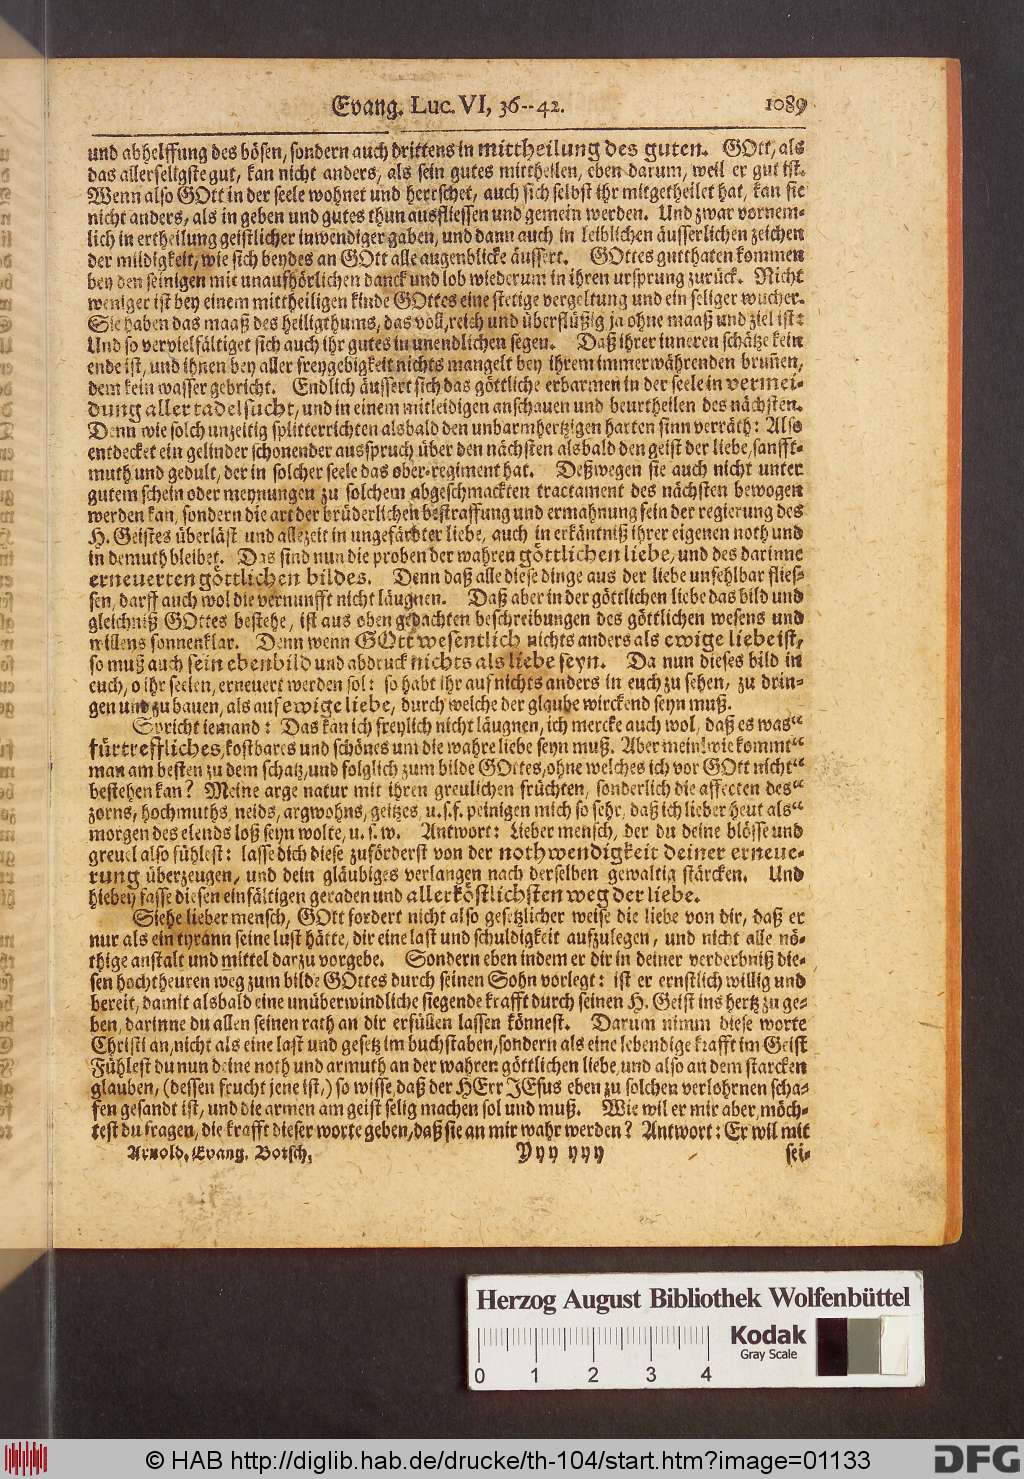 Evang. Luc. VI, 36--42. 1089
und abhelffung des bösen, sondern auch drittens in mittheilung des guten. GOtt, als
das allerseligste gut, kan nicht anders, als sein gutes mittheilen, eben darum, weil er gut ist.
Wenn also GOtt in der seele wohnet und herrschet, auch sich selbst ihr mitgetheilet hat, kan sie
nicht anders, als in geben und gutes thun ausfliessen und gemein werden. Und zwar vornem-
lich in ertheilung geistlicher inwendiger gaben, und dann auch in leiblichen äusserlichen zeichen
der mildigkeit, wie sich beydes an GOtt alle augenblicke äussert. GOttes gutthaten kommen
bey den seinigen mit unaufhörlichen danck und lob wiederum in ihren ursprung zurück. Nicht
weniger ist bey einem mittheiligen kinde GOttes eine stetige vergeltung und ein seliger wucher.
Sie haben das maaß des heiligthums, das voll, reich und überflüßig ja ohne maaß und ziel ist:
Und so vervielfältiget sich auch ihr gutes in unendlichen segen. Daß ihrer inneren schätze kein
ende ist, und ihnen bey aller freygebigkeit nichts mangelt bey ihrem immerwährenden brunen,
dem kein wasser gebricht. Endlich äussert sich das göttliche erbarmen in der seele in vermei-
dung aller tadelsucht, und in einem mitleidigen anschauen und beurtheilen des nächsten.
Denn wie solch unzeitig splitterrichten alsbald den unbarmhertzigen harten sinn verräth: Also
entdecket ein gelinder schonender ausspruch über den nächsten alsbald den geist der liebe, sanfft-
muth und gedult, der in solcher seele das ober-regiment hat. Deßwegen sie auch nicht unter
gutem schein oder meynungen zu solchem abgeschmackten tractament des nächsten bewogen
werden kan, sondern die art der brüderlichen bestraffung und ermahnung sein der regierung des
H. Geistes überläst und allezeit in ungefärbter liebe, auch in erkäntniß ihrer eigenen noth und
in demuth bleibet. Das sind nun die proben der wahren göttlichen liebe, und des darinne
erneuerten göttlichen bildes. Denn daß alle diese dinge aus der liebe unfehlbar flies-
sen, darff auch wol die vernunfft nicht läugnen. Daß aber in der göttlichen liebe das bild und
gleichniß GOttes bestehe, ist aus oben gedachten beschreibungen des göttlichen wesens und
willens sonnenklar. Denn wenn GOtt wesentlich nichts anders als ewige liebe ist,
so muß auch sein ebenbild und abdruck nichts als liebe seyn. Da nun dieses bild in
euch, o ihr seelen, erneuert werden sol: so habt ihr auf nichts anders in euch zu sehen, zu drin-
gen und zu bauen, als auf ewige liebe, durch welche der glaube wirckend seyn muß.
Spricht iemand: Das kan ich freylich nicht läugnen, ich mercke auch wol, daß es was“
fürtreffliches, kostbares und schönes um die wahre liebe seyn muß. Aber mein! wie kommt“
man am besten zu dem schatz, und folglich zum bilde GOttes, ohne welches ich vor GOtt nicht“
bestehen kan? Meine arge natur mit ihren greulichen früchten, sonderlich die affecten des“
zorns, hochmuths, neids, argwohns, geitzes, u. s. f. peinigen mich so sehr, daß ich lieber heut als“
morgen des elends loß seyn wolte, u. s. w. Antwort: Lieber mensch, der du deine blösse und
greuel also fühlest: lasse dich diese zuförderst von der nothwendigkeit deiner erneue-
rung überzeugen, und dein gläubiges verlangen nach derselben gewaltig stärcken. Und
hiebey fasse diesen einfältigen geraden und allerköstlichsten weg der liebe.
Siehe lieber mensch, GOtt fordert nicht also gesetzlicher weise die liebe von dir, daß er
nur als ein tyrann seine lust hätte, dir eine last und schuldigkeit aufzulegen, und nicht alle nö-
thige anstalt und mittel darzu vorgebe. Sondern eben indem er dir in deiner verderbniß die-
sen hochtheuren weg zum bilde GOttes durch seinen Sohn vorlegt: ist er ernstlich willig und
bereit, damit alsbald eine unüberwindliche siegende krafft durch seinen H. Geist ins hertz zu ge-
ben, darinne du allen seinen rath an dir erfüllen lassen könnest. Darum nimm diese worte
Christi an, nicht als eine last und gesetz im buchstaben, sondern als eine lebendige krafft im Geist
Fühlest du nun deine noth und armuth an der wahren göttlichen liebe, und also an dem starcken
glauben, (dessen frucht jene ist,) so wisse, daß der HErr JEsus eben zu solchen verlohrnen scha-
fen gesandt ist, und die armen am geist selig machen sol und muß. Wie wil er mir aber, möch-
test du fragen, die krafft dieser worte geben, daß sie an mir wahr werden? Antwort: Er wil mit
Arnold. Evang. Botsch. Yyy yyy sei-
Herzog August Bibliothek Wolfenbüttel
Kodak
Gray Scale
0 1 2 3 4
© HAB http://diglib.hab.de/drucke/th-104/start.htm?image=01133
DFG